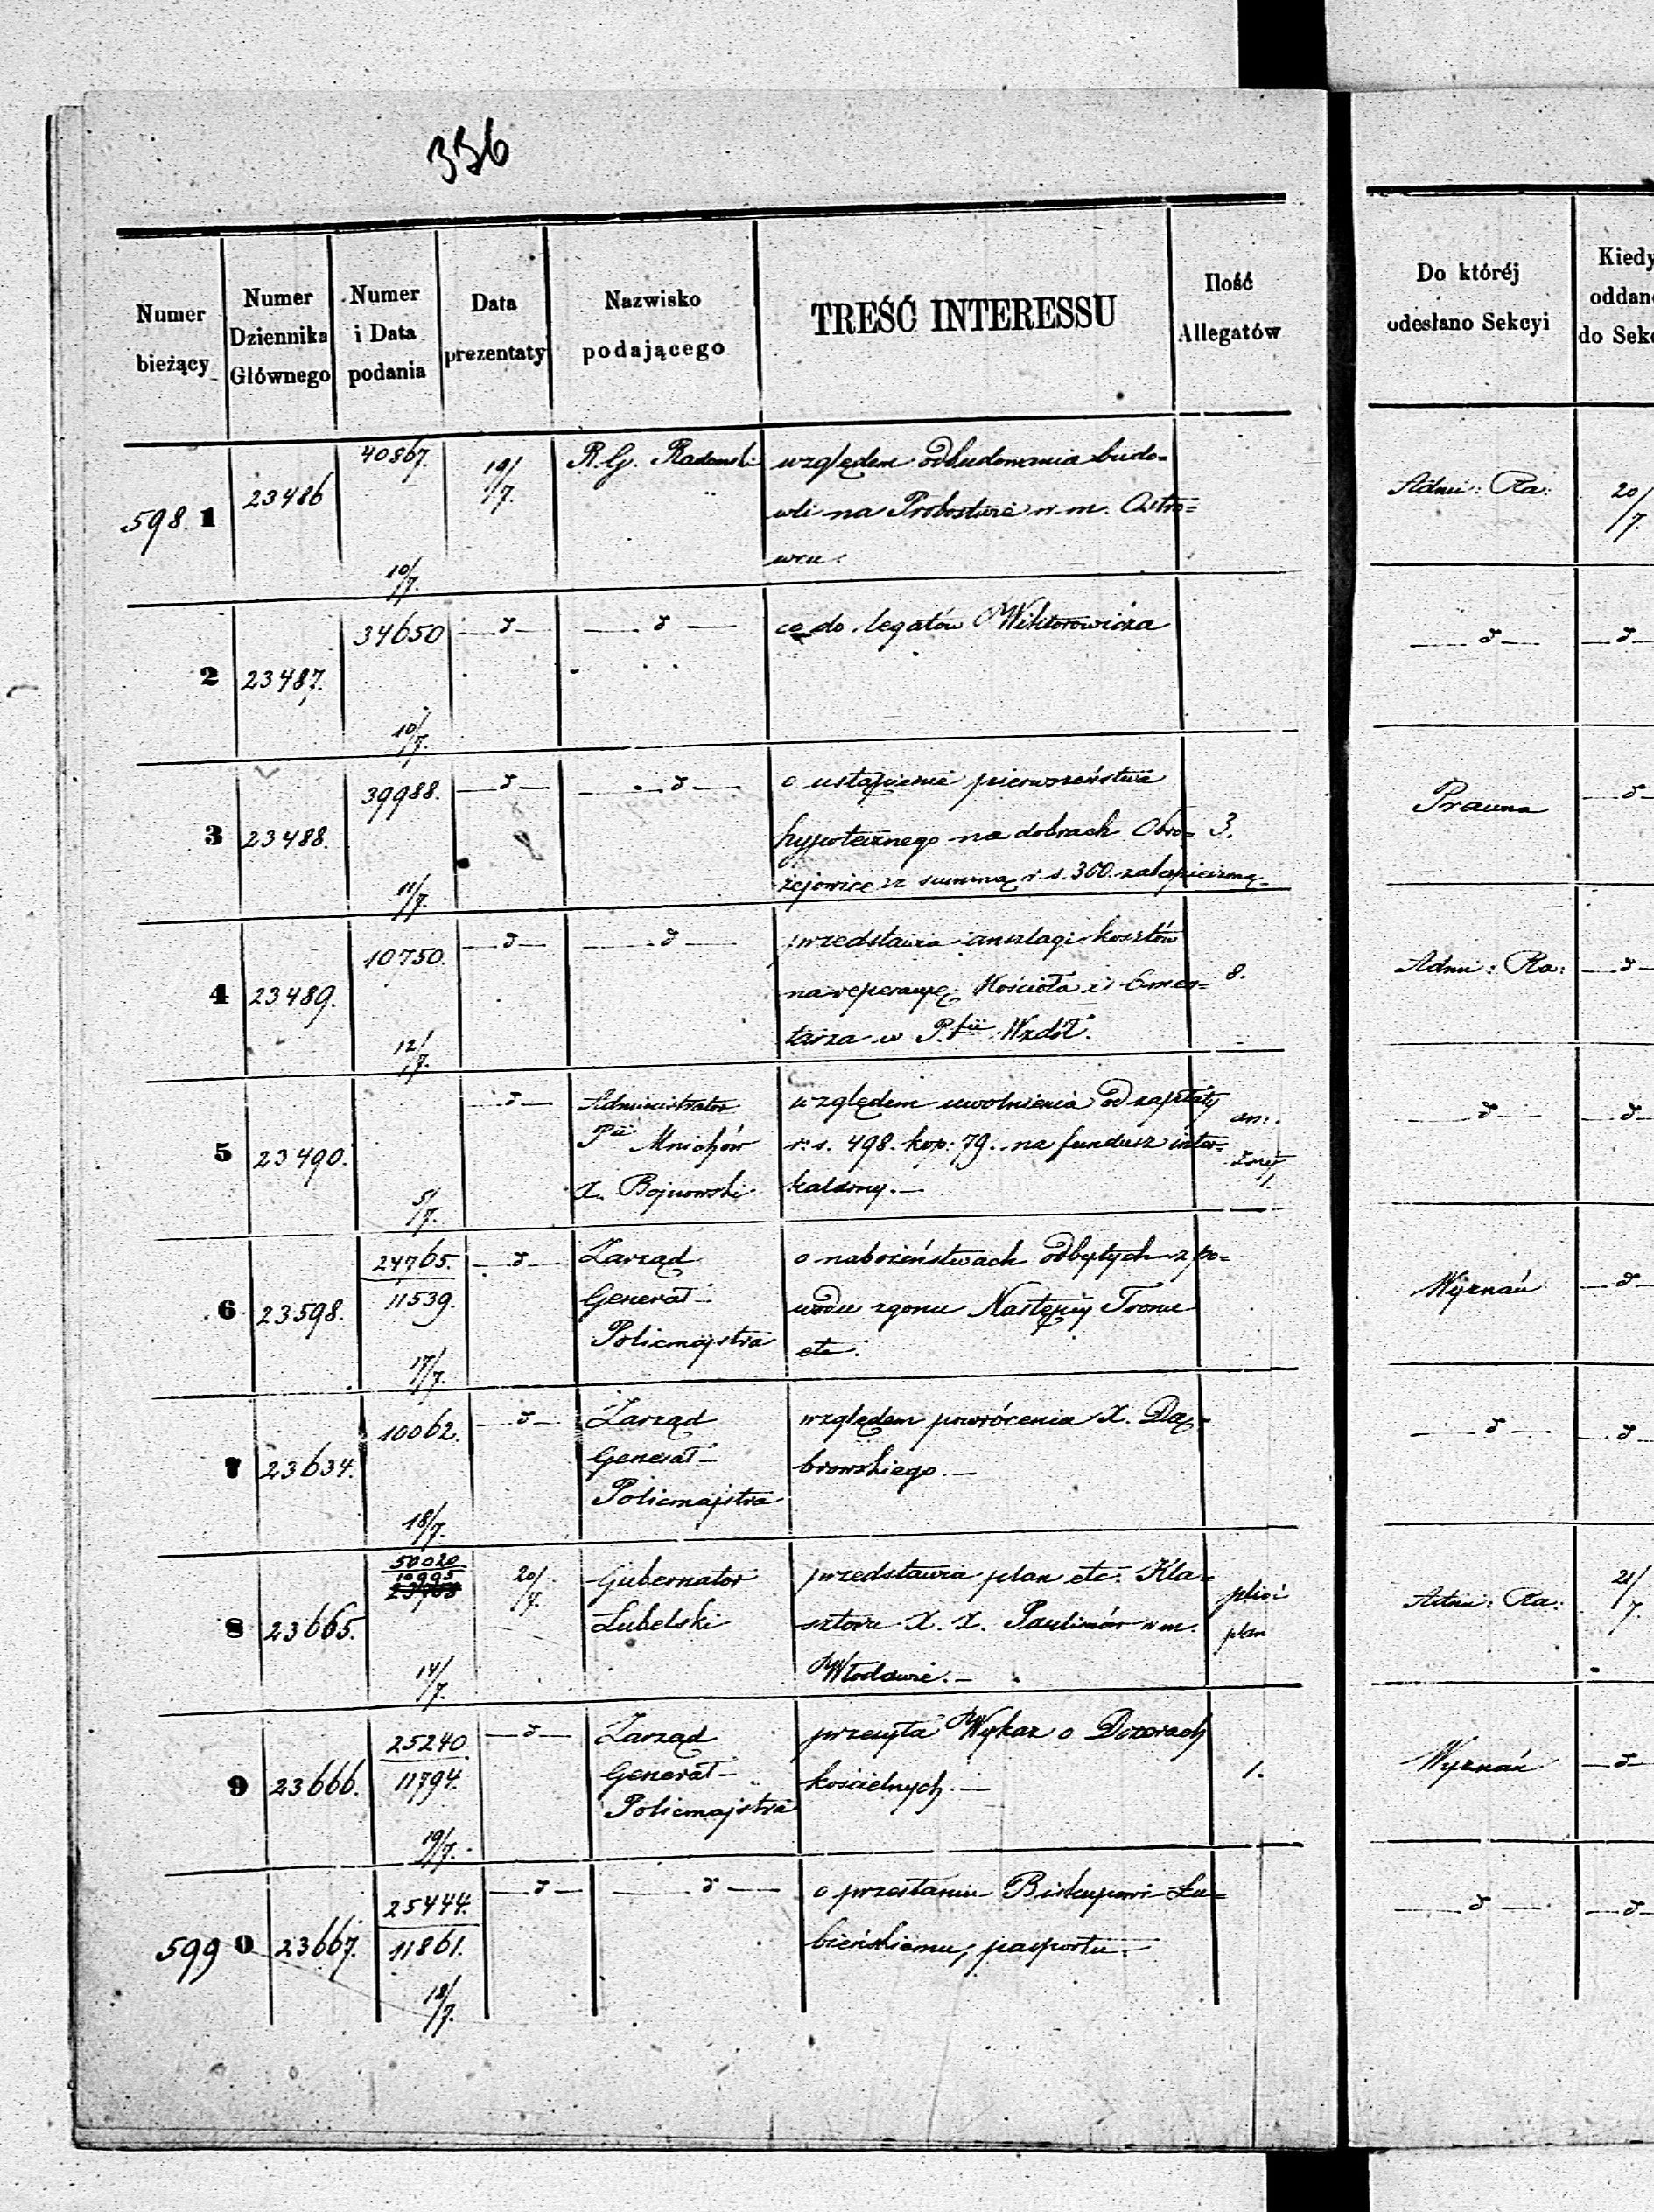 336
Numer bieżący
Numer Dziennika Głównego
Numer i Data podania
Data prezentaty
Nazwisko podającego
TREŚĆ INTERESSU
Ilość Allegatów
Do któréj odesłano Sekcyi
Kiedy oddano do Sek
598.1 23486 40867. 10/7. 19/7. R. G. Radomski względem odbudowania budo= Adm: Ra: 20/7.
wli na Probostwie w m. Ostro=
wcu.
2 23487. 34650 10/7. — d — — d — co do legatów Wiktorowicza — d — — d —
3 23488. 39988. 11/7. — d — — d — o ustąpienie pierwszeństwa Prawna — d —
hypotecznego na dobrach Obro= 3.
żejowice z summą r. s. 300. zabezpieczoną.
4 23489. 10750. 12/7. — d — — d — przedstawia anszlagi kosztów 8. Adm: Ra: — d —
na reperacyę Kościoła i Cmen=
tarza w P.fii Wzdół.
5 23490. 5/7. — d — Administrator względem uwolnienia od zapłaty — d — — d —
Pii Mnichów r. s. 498. kop: 79. na fundusz inter=
X. Bojnowski kalarny. —
6 23598. 24765. 11539. 17/7. — d — Zarząd o nabożeństwach odbytych z po= Wyznań — d —
Generał- wodu zgonu Następcy Tronu
Policmajstra etc.
7 23634. 10062. 18/7. — d — Zarząd względem powrócenia X. Dą= — d — — d —
Generał- browskiego. —
Policmajstra
8 23665. 50020 10995 14/7. 20/7. Gubernator przedstawia plan etc. Kla= Adm: Ra: 21/7.
Lubelski sztoru X. X. Paulinów w m. plan
Włodawie. —
9 23666. 25240 11794. 19/7. — d — Zarząd przesyła Wykaz o Dozorach 1. Wyznań — d —
Generał- kościelnych. —
Policmajstra
599 0 23667. 25444. 11861. 18/7. — d — — d — o przesłaniu Biskupowi Łu= — d — — d —
bieńskiemu, pasportu.